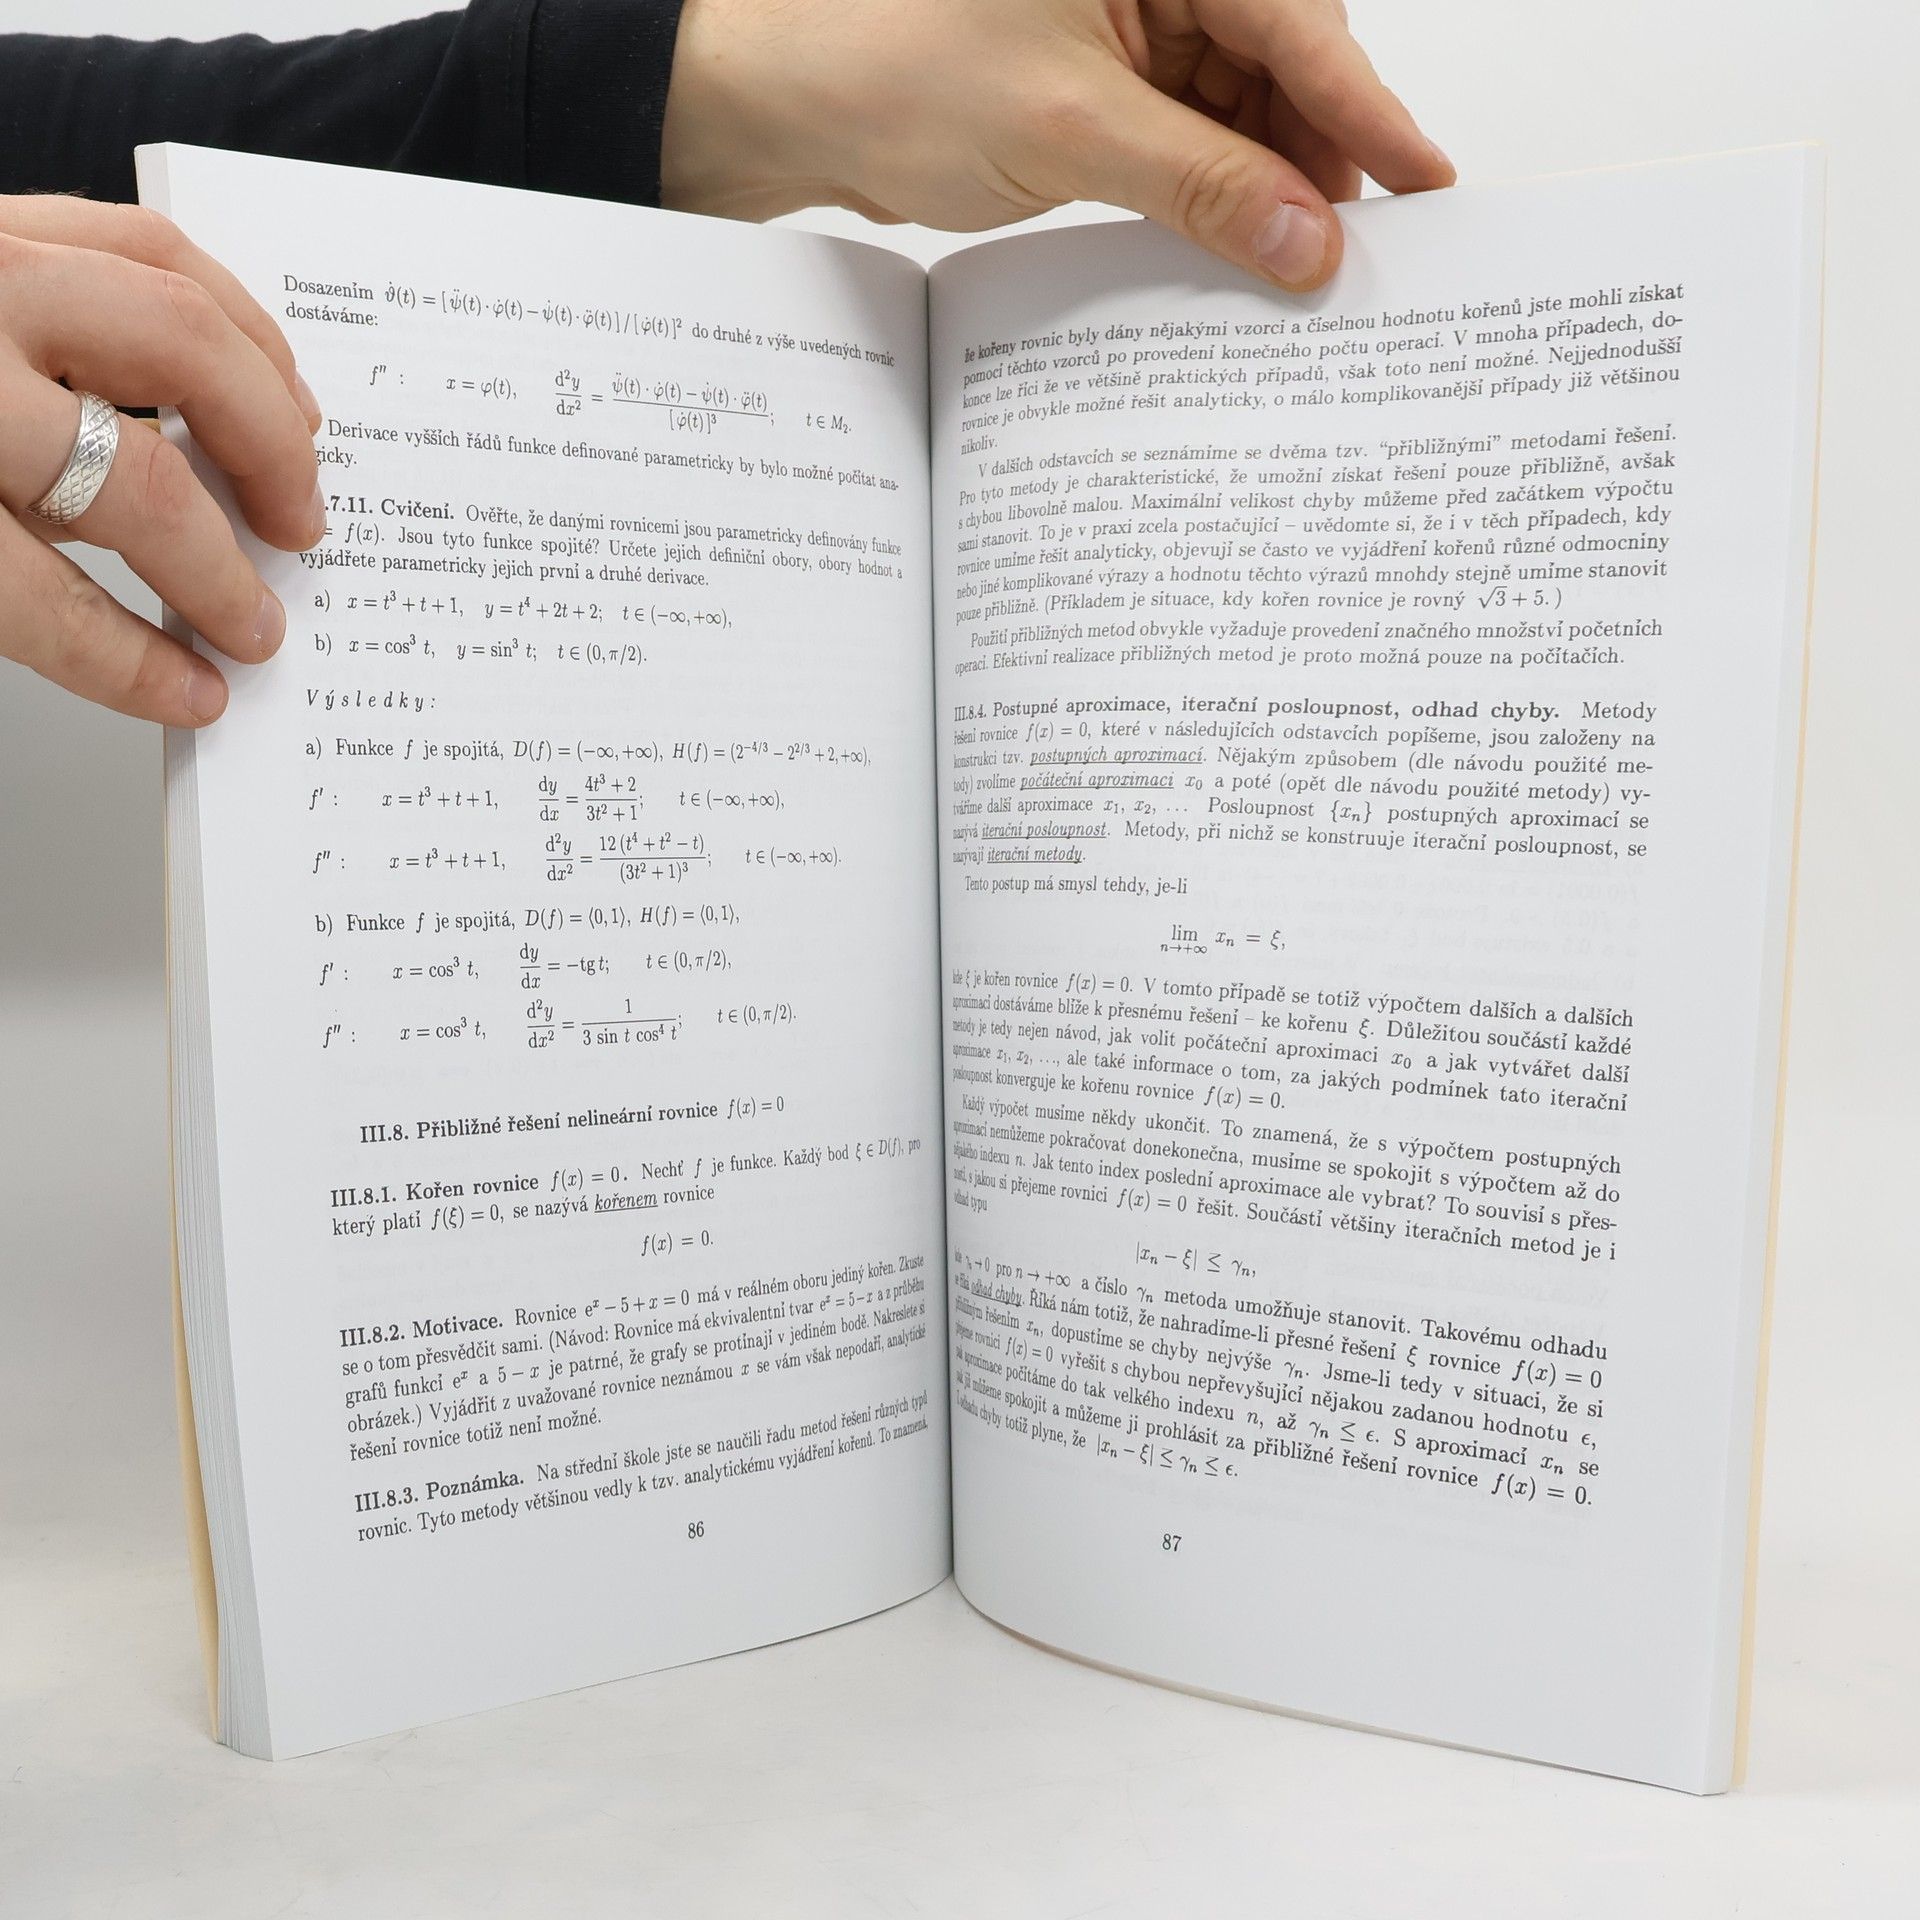 Dosazením ϑ̇(t) = [ψ̈(t)·φ̇(t) − ψ̇(t)·φ̈(t)] / [φ̇(t)]² do druhé z výše uvedených rovnic
dostáváme:
f″ : x = φ(t), d²y/dx² = (ψ̈(t)·φ̇(t) − ψ̇(t)·φ̈(t)) / [φ̇(t)]³; t ∈ M₂.
Derivace vyšších řádů funkce definované parametricky by bylo možné počítat ana-
gicky.
.7.11. Cvičení. Ověřte, že danými rovnicemi jsou parametricky definovány funkce
= f(x). Jsou tyto funkce spojité? Určete jejich definiční obory, obory hodnot a
vyjádřete parametricky jejich první a druhé derivace.
a) x = t³ + t + 1, y = t⁴ + 2t + 2; t ∈ (−∞, +∞),
b) x = cos³ t, y = sin³ t; t ∈ (0, π/2).
Výsledky:
a) Funkce f je spojitá, D(f) = (−∞, +∞), H(f) = (2^(−4/3) − 2^(2/3) + 2, +∞),
f′ : x = t³ + t + 1, dy/dx = (4t³ + 2)/(3t² + 1); t ∈ (−∞, +∞),
f″ : x = t³ + t + 1, d²y/dx² = 12 (t⁴ + t² − t)/(3t² + 1)³; t ∈ (−∞, +∞).
b) Funkce f je spojitá, D(f) = ⟨0, 1⟩, H(f) = ⟨0, 1⟩,
f′ : x = cos³ t, dy/dx = −tg t; t ∈ (0, π/2),
f″ : x = cos³ t, d²y/dx² = 1/(3 sin t cos⁴ t); t ∈ (0, π/2).
III.8. Přibližné řešení nelineární rovnice f(x) = 0
III.8.1. Kořen rovnice f(x) = 0. Nechť f je funkce. Každý bod ξ ∈ D(f), pro
který platí f(ξ) = 0, se nazývá kořenem rovnice
f(x) = 0.
III.8.2. Motivace. Rovnice eˣ − 5 + x = 0 má v reálném oboru jediný kořen. Zkuste
se o tom přesvědčit sami. (Návod: Rovnice má ekvivalentní tvar eˣ = 5 − x a z průběhu
grafů funkcí eˣ a 5 − x je patrné, že grafy se protínají v jediném bodě. Nakreslete si
obrázek.) Vyjádřit z uvažované rovnice neznámou x se vám však nepodaří, analytické
řešení rovnice totiž není možné.
III.8.3. Poznámka. Na střední škole jste se naučili řadu metod řešení různých typů
rovnic. Tyto metody většinou vedly k tzv. analytickému vyjádření kořenů. To znamená,
86
že kořeny rovnic byly dány nějakými vzorci a číselnou hodnotu kořenů jste mohli získat
pomocí těchto vzorců po provedení konečného počtu operací. V mnoha případech, do-
konce lze říci že ve většině praktických případů, však toto není možné. Nejjednodušší
rovnice je obvykle možné řešit analyticky, o málo komplikovanější případy již většinou
nikoliv.
V dalších odstavcích se seznámíme se dvěma tzv. “přibližnými” metodami řešení.
Pro tyto metody je charakteristické, že umožní získat řešení pouze přibližně, avšak
s chybou libovolně malou. Maximální velikost chyby můžeme před začátkem výpočtu
sami stanovit. To je v praxi zcela postačující – uvědomte si, že i v těch případech, kdy
rovnice umíme řešit analyticky, objevují se často ve vyjádření kořenů různé odmocniny
nebo jiné komplikované výrazy a hodnotu těchto výrazů mnohdy stejně umíme stanovit
pouze přibližně. (Příkladem je situace, kdy kořen rovnice je rovný √3 + 5. )
Použití přibližných metod obvykle vyžaduje provedení značného množství početních
operací. Efektivní realizace přibližných metod je proto možná pouze na počítačích.
III.8.4. Postupné aproximace, iterační posloupnost, odhad chyby. Metody
řešení rovnice f(x) = 0, které v následujících odstavcích popíšeme, jsou založeny na
konstrukci tzv. postupných aproximací. Nějakým způsobem (dle návodu použité me-
tody) zvolíme počáteční aproximaci x₀ a poté (opět dle návodu použité metody) vy-
tváříme další aproximace x₁, x₂, … Posloupnost {xₙ} postupných aproximací se
nazývá iterační posloupnost. Metody, při nichž se konstruuje iterační posloupnost, se
nazývají iterační metody.
Tento postup má smysl tehdy, je-li
lim n→+∞ xₙ = ξ,
kde ξ je kořen rovnice f(x) = 0. V tomto případě se totiž výpočtem dalších a dalších
aproximací dostáváme blíže k přesnému řešení – ke kořenu ξ. Důležitou součástí každé
metody je tedy nejen návod, jak volit počáteční aproximaci x₀ a jak vytvářet další
aproximace x₁, x₂, …, ale také informace o tom, za jakých podmínek tato iterační
posloupnost konverguje ke kořenu rovnice f(x) = 0.
Každý výpočet musíme někdy ukončit. To znamená, že s výpočtem postupných
aproximací nemůžeme pokračovat donekonečna, musíme se spokojit s výpočtem až do
nějakého indexu n. Jak tento index poslední aproximace ale vybrat? To souvisí s přes-
ností, s jakou si přejeme rovnici f(x) = 0 řešit. Součástí většiny iteračních metod je i
odhad typu
|xₙ − ξ| ≤ γₙ,
kde γₙ → 0 pro n → +∞ a číslo γₙ metoda umožňuje stanovit. Takovému odhadu
se říká odhad chyby. Říká nám totiž, že nahradíme-li přesné řešení ξ rovnice f(x) = 0
přibližným řešením xₙ, dopustíme se chyby nejvýše γₙ. Jsme-li tedy v situaci, že si
přejeme rovnici f(x) = 0 vyřešit s chybou nepřevyšující nějakou zadanou hodnotu ϵ,
pak aproximace počítáme do tak velkého indexu n, až γₙ ≤ ϵ. S aproximací xₙ se
pak již můžeme spokojit a můžeme ji prohlásit za přibližné řešení rovnice f(x) = 0.
Z odhadu chyby totiž plyne, že |xₙ − ξ| ≤ γₙ ≤ ϵ.
87